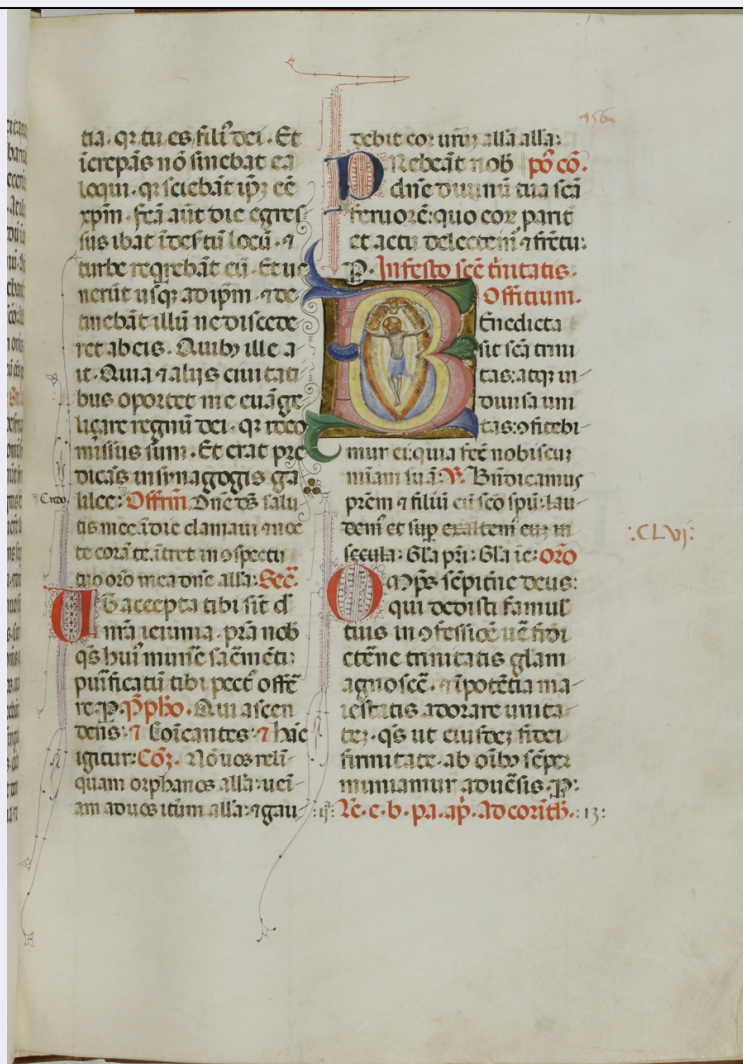 tia. qr tu es fili dei. Et
īcrepās nō sinebat ea
loqui. qr sciebāt ip̄z eē
xp̄m. fc̄ā aūt die egres
sus ibat ī desʼtū locū. ⁊
turbe reqrebāt eū. Et ue
nerūt usq; ad ip̄m. ⁊ de
tinebāt illū ne discede
ret ab eis. Quib; ille a
it. Quia ⁊ alijs ciuitati
bus oportet me euāge
liçare regnū dei. qr ideo
missus sum. Et erat pre
dicās in synagogis ga
Credo.
lilee: Offrm̄. Dn̄e ds̄ salu
tis mee. ī die clamaui ⁊ noc
te corā te. ītret in ɔspectu
tuo oro mea dn̄e alla. Sec̄.
Ub accepta tibi sīt d
n̄ra ieiunia. prā nob
qs̄ huiʼ munīe sac̄mēti:
puʼificatū tibi pectʼ offē
re. P. p̄ pho. Qui ascen
dens. ⁊ Coīcantes. ⁊ hāc
igitur. Cōz. Nō uos reli
quam orphanos alla: uei
am ad uos itūm alla: ⁊ gau
156
debit cor urūz alla alla:
Prebeāt nob pō cō.
dn̄e diuinū tua scā
feruorē: quo eor parit
et actu delectemʼ ⁊ frctu:
P. In festo scē tʼnitatis.
Offitium.
Benedicta
sit scā trini
tas: atqz in
diuisa uni
tas: ɔfitebi
mur ei: quia fec̄ nobiscuz
mīam suā: V. Bn̄dicamus
p̄rem ⁊ filiū cū sc̄o spū: lau
demʼ et sup exaltemʼ euz in
secula: Gla pri: Gla ī e: oro
Om̄p̄s sēpitn̄e deus:
qui dedisti famulʼ
tuis in ɔfessiōe ue fidi
etʼne trinitatis glam
agnoscē. ⁊ ī potētia ma
iestatis adorare unita
tez. qs̄ ut eiusdez fidei
firmitate. ab oīb; sēper
muniamur aduʼsis. P.
:CLVJ:
Lc̄. e. b. pa. ap̄. Ad corīth. : 13: